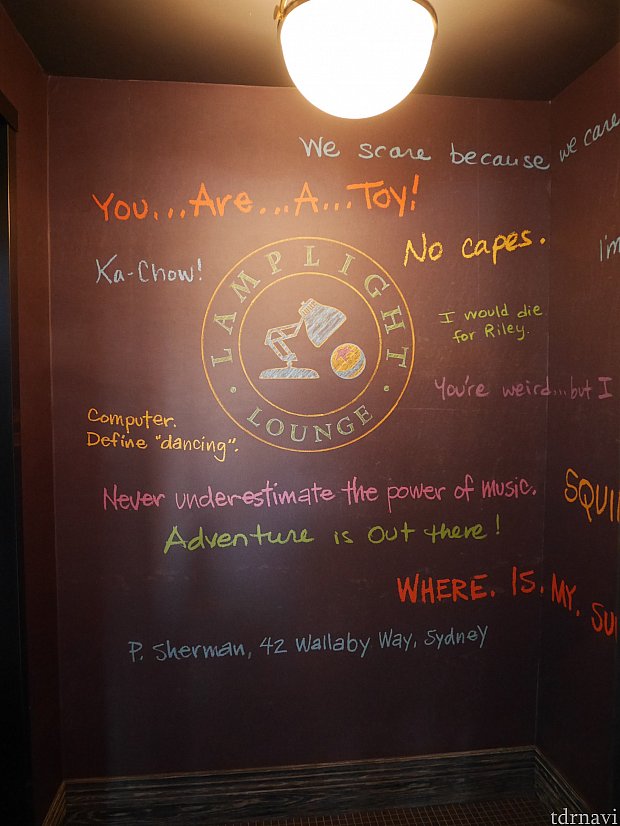 We scare because we care
You...Are...A...Toy!
No capes.
Ka-Chow!
I'm
LAMPLIGHT
LOUNGE
I would die
for Riley.
You're weird...but I
Computer.
Define "dancing".
Never underestimate the power of music.
Adventure is out there!
WHERE. IS. MY.
P. Sherman, 42 Wallaby Way, Sydney
tdrnavi